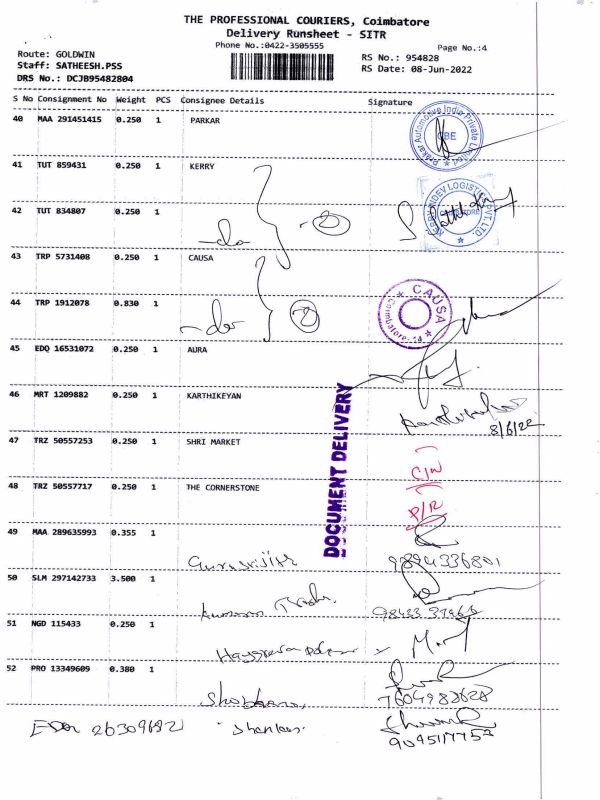 THE PROFESSIONAL COURIERS, Coimbatore
Delivery Runsheet - SITR
Phone No.:0422-3505555
Page No.:4
Route: GOLDWIN
RS No.: 954828
Staff: SATHEESH.PSS
RS Date: 08-Jun-2022
DRS No.: DCJB95482804
S No Consignment No Weight PCS Consignee Details Signature
40 MAA 291451415 0.250 1 PARKAR
CBE
41 TUT 859431 0.250 1 KERRY
42 TUT 834807 0.250 1
-do- 2
43 TRP 5731408 0.250 1 CAUSA
CAUSA
Coimbatore-14
44 TRP 1912078 0.830 1
-do- 2
45 EDQ 16531072 0.250 1 AURA
46 MRT 1209882 0.250 1 KARTHIKEYAN
8/6/22
DOCUMENT DELIVERY
47 TRZ 50557253 0.250 1 SHRI MARKET
C/N
48 TRZ 50557717 0.250 1 THE CORNERSTONE
P/R
49 MAA 289635993 0.355 1
9894336801
50 SLM 297142733 3.500 1
51 NGD 115433 0.250 1
52 PRO 13349609 0.380 1
Shobana
7604982628
26309682 Shankar